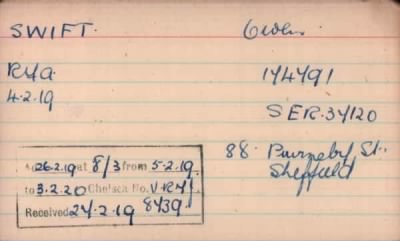 SWIFT. Owen
RFA. 174791
4.2.19
SER.34120
88. Purneby St.,
Sheffield
26.2.19 at 8/3 from 5.2.19.
to 3.2.20 Chelsea No. VRM1
Received 24.2.19 8439